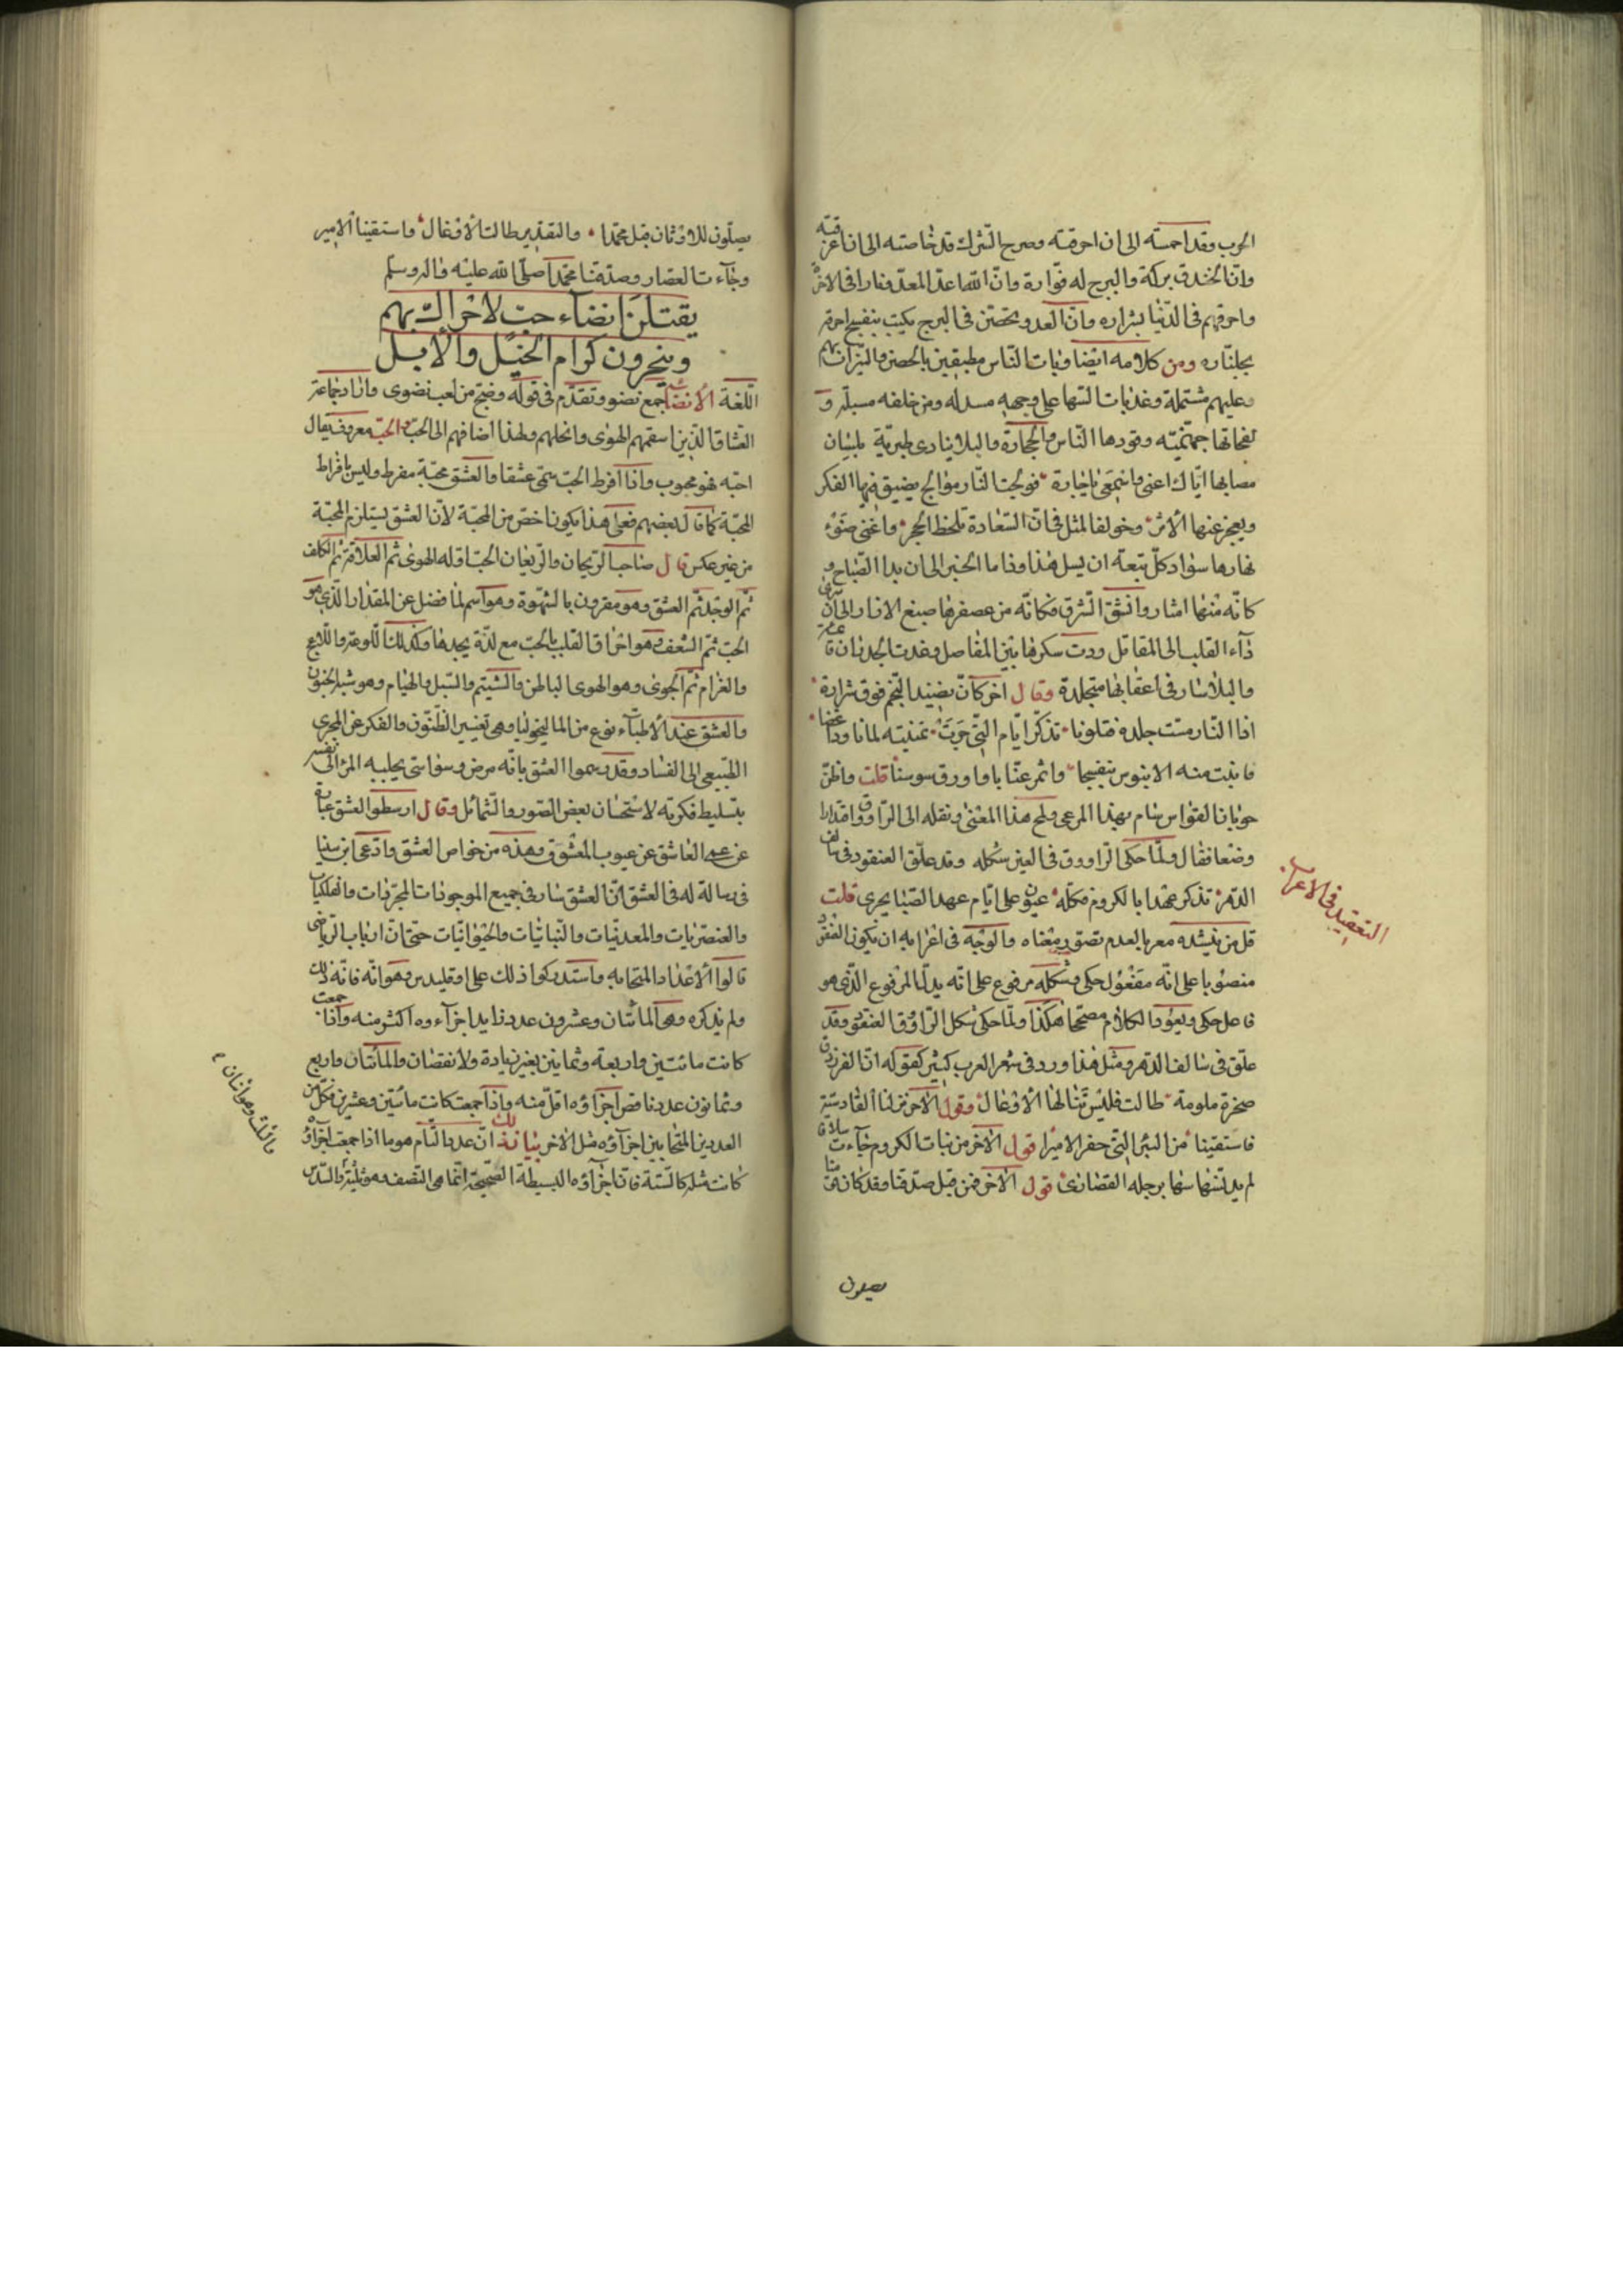 الحرب وقد احمسته الى ان احرقته وصرح الشرك قد خاصته الى ان اغرقته
وان الخندق بركة والبرج له فوارة وان الله اعد المعدو نارا فى الاخرة
واحرقهم فى الدنيا بشراره وان العدو تحصن فى البرج بنفسج احرقه
بجلناره ومن كلامه ايضا وبات الناس مطيفين بالحصن والنيران بهم
وعليهم مشتملة وعذبات السنها على وجهه مسدله ومن خلفه مسبلة و
لفحاتها جهنميه وقودها الناس والحجارة والبلا ينادى طبرية بلسان
مصابها اياك اعنى واسمعى يا جارة فولجت النار موالج يضيق فيها الفكر
ويعجز عنها الابر وخولف المثل فى ان السعادة تلحظ الحجر واغنى ضوء
نهارها سواد كل بقعة ان يسل هذا وذا ما الخبر الى ان بدا الصباح و
كانه منها امتار وانشق الشرق فكانه من عصفرها صبغ الازار الى ان سرى
داء القلب الى المقاتل ودبت سكرها بين المفاصل وغدت الجدران قائمة
والبلا سار فى اعقابها متجلدة وقال اخر كان نضيد الفحم فوق شرارة
اذا النار مست جلده فتلونا تذكر ايام التى جرت تمنيته لما نا ودا غضا
فانبت منه الابنوس بنفسجا واثمر عنابا واورق سوسنا قلت واظن
جوبان القواس شام بهذا المرعى ولمح هذا المعنى ونقله الى الراووق واقتدارا
وضعا فقال ولما حكى الراووق فى العين شكله وقد علق العنقود فى سالف
الدهر تذكر عهدا بالكروم فكله عيون على ايام عهد الصبا يجرى قلت
قل من ينشده معربا لعدم تصور معناه والوجه فى اعرابه ان يكون العنقود
منصوبا على انه مفعول حكى وشكله مرفوع على انه بدل المرفوع الذى هو
فاعل حكى ويعود الكلام مصححا هكذا ولما حكى شكل الراووق العنقود وقد
علق فى سالف الدهر ومثل هذا ورد فى شعر العرب كثير كقوله ان الفرزدق
صخرة ملومة طالت فليس تنالها الاوعال وقول الاخر نزلنا القادسية
فاستقينا من البئر التى حفر الاميرا قول الاخر من بنات الكروم جاءت سلافا
لم يدنسها برجله القصارى قول الاخر فمن قبل صدقنا وقد كان منا
التعقيد فى الاعراب
يصلون
يصلون للاوثان قبل محمدا والتقدير طالت الاوعال فاستقينا الامير
وجاءت القصار وصدقنا محمدا صلى الله عليه واله وسلم
يقتلن انضاء حب لا حراك بهم
وينحرون كرام الخيل والابل
اللغة الانضاء جمع نضو وتقدم فى قوله وضج من لغب نضوى واراد جماعة
العشاق الذين اسقمهم الهوى وانحلهم ولهذا اضافهم الى الحب والحب معروف يقال
احبه فهو محبوب واذا افرط الحب سمى عشقا والعشق محبة مفرط وليس بافراط
المحبة كما قال بعضهم فعلى هذا يكون اخص من المحبة لان العشق يستلزم المحبة
من غير عكس قال صاحب الريحان والريعان الحب اوله الهوى ثم العلاقة ثم الكلف
ثم الوجد ثم العشق وهو مقرون بالشهوة وهو اسم لما فضل عن المقدار الذى هو
الحب ثم الشغف وهو احراق القلب بالحب مع لذة يجدها وكذلك اللوعة واللاعج
والغرام ثم الجوى وهو الهوى الباطن والتتيم والتبل والهيام وهو شبه الجنون
والعشق عند الاطباء نوع من الماليخوليا وهى تغيير الظنون والفكر عن المجرى
الطبيعى الى الفساد وقد رسموا العشق بانه مرض وسواسى يجلبه المرء الى نفسه
بتسليط فكرته لاستحسان بعض الصور والشمائل وقال ارسطو العشق عبارة
عن عمى العاشق عن عيوب المعشوق وهذه من خواص العشق وادعى ابن سينا
فى رسالة له فى العشق ان العشق سار فى جميع الموجودات المجردات والفلكيات
والعنصريات والمعدنيات والنباتيات والحيوانيات حتى ان ارباب الرياضى
قالوا الاعداد المتحابه واستدركوا ذلك على اوقليدس وهو انه فاته ذلك
ولم يذكره وهى المائتان وعشرون عدد زايد اجزاءه اكثر منه واذا جمعت
كانت مائتين واربعة وثمانين بغير زيادة ولا نقصان والمائتان واربع
وثمانون عدد ناقص اجزاؤه اقل منه واذا جمعت كانت مائتين وعشرين فكل من
العددين المتحابين اجزاؤه مثل الاخر بيان ذلك ان عدد التام هو ما اذا جمعت اجزاؤه
كانت مثله كالستة فان اجزاؤه البسيطة الصحيحة انما هى النصف وهو ثلثة والسدس